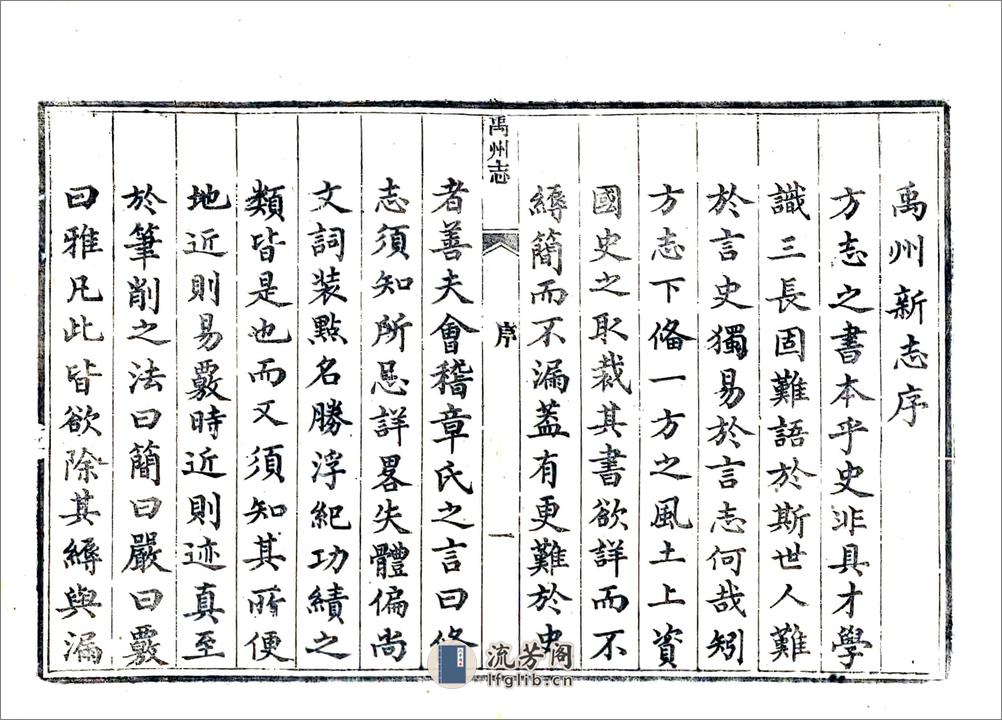 禹州新志序
方志之書本乎史非具才學
識三長固難語於斯世人難
於言史獨易於言志何哉矧
方志下俻一方之風土上資
國史之取裁其書欲詳而不
縟簡而不漏葢有更難於史
禹州志
序
一
者善夫會稽章氏之言曰修
志須知所忌詳畧失體偏尚
文詞裝點名勝浮紀功績之
類皆是也而又須知其所便
地近則易覈時近則迹真至
於筆削之法曰簡曰嚴曰覈
曰雅凡此皆欲除其縟與漏
流芳阁
lfglib.cn